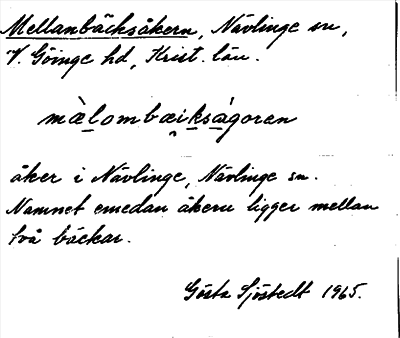 Mellanbäcksåkern, Nävlinge sn,
V. Göinge hd, Krist. län.
mὰlombæikságoren
åker i Nävlinge, Nävlinge sn.
Namnet emedan åkern ligger mellan
två bäckar.
Gösta Sjöstedt 1965.